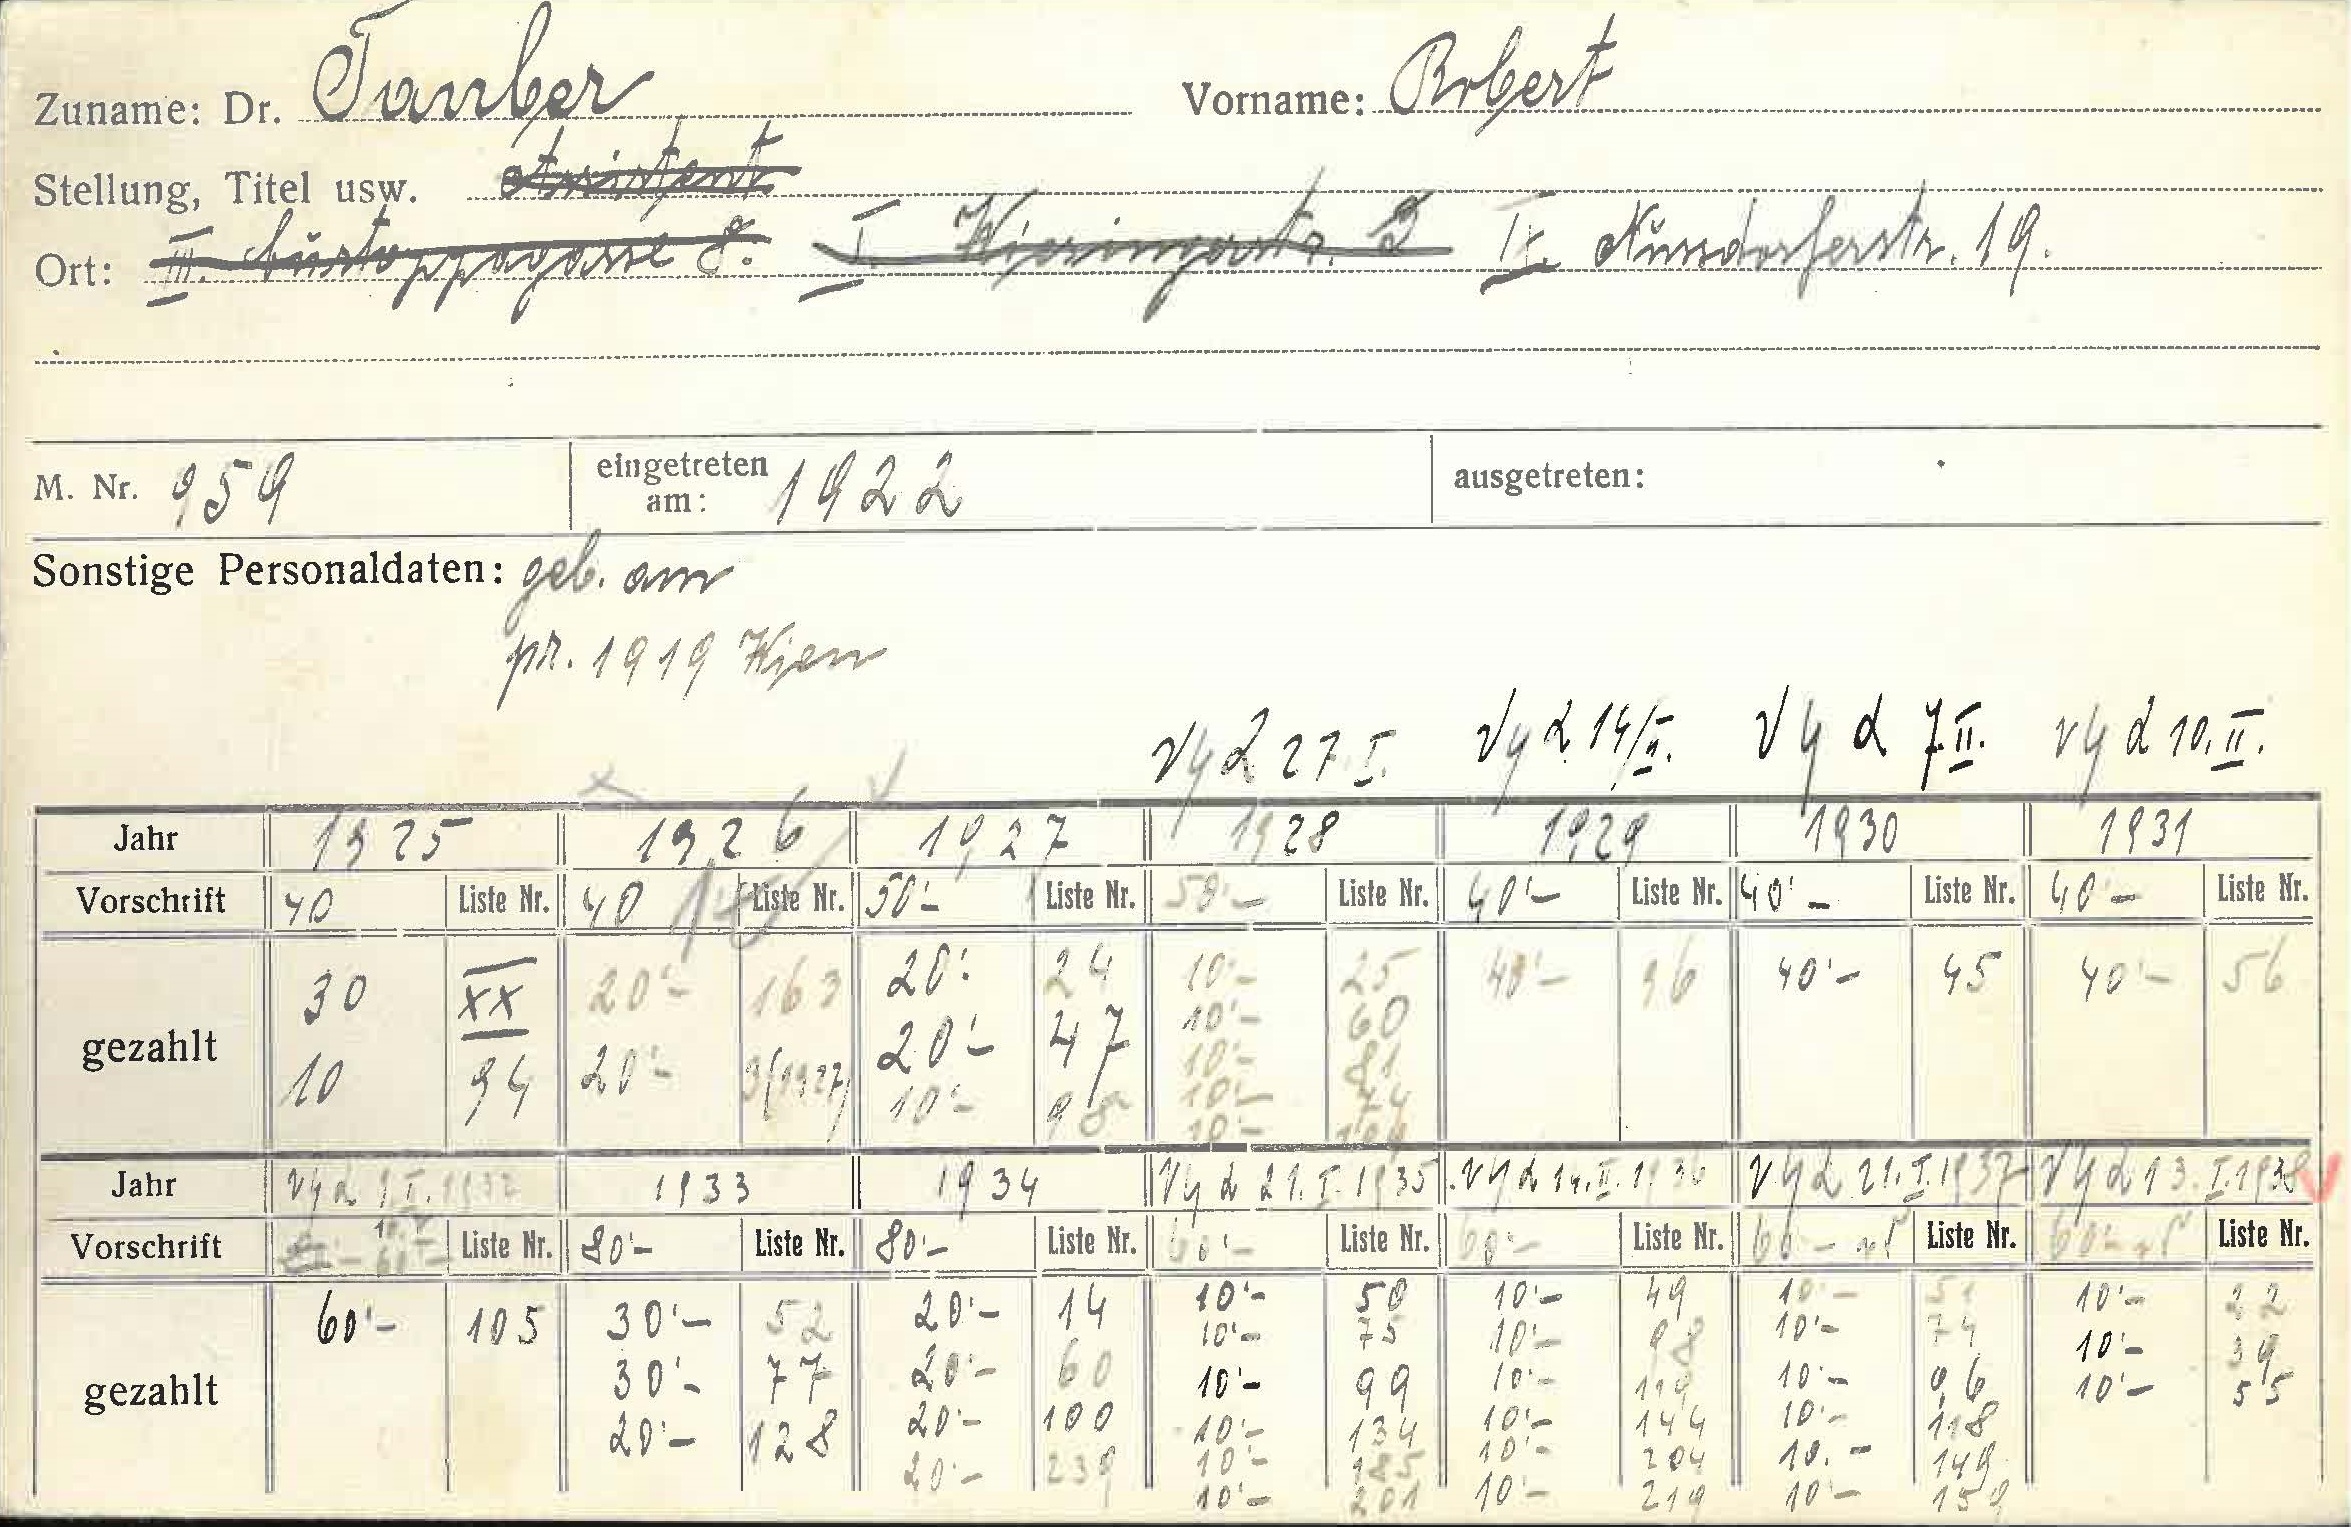 Zuname: Dr. Tauber Vorname: Robert
Stellung, Titel usw. Assistent
Ort: III. gasse 8. I. Wiesingerstr. 3 IX. Nussdorferstr. 19.
M. Nr. 959 eingetreten am: 1922 ausgetreten:
Sonstige Personaldaten: geb. am
pr. 1919 Wien
27. I. 14/II. 7. II. 10. II.
Jahr 1925 1926 1927 1928 1929 1930 1931
Vorschrift 40 Liste Nr. 40 Liste Nr. 50'- Liste Nr. 50'- Liste Nr. 40'- Liste Nr. 40'- Liste Nr. 40'- Liste Nr.
gezahlt
30 XX 20'- 163 20'- 24 10'- 25 40'- 96 40'- 45 40'- 56
10'- 60
20'- 47
10 94 20'- 3(1927) 10'- 81
10'- 98 10'- 74
10'-
Jahr 1932 1933 1934 21. I. 1935 14. II. 1936 21. I. 1937 13. I. 1938
Vorschrift 60'- Liste Nr. 80'- Liste Nr. 80'- Liste Nr. 60'- Liste Nr. 60'- Liste Nr. 60'- Liste Nr. 60'- Liste Nr.
gezahlt
60'- 105 30'- 52 20'- 14 10'- 50 10'- 49 10'- 51 10'- 22
10'- 75 10'- 98 10'- 74 10'- 39
30'- 77 20'- 60 10'- 99 10'- 119 10'- 96 10'- 55
20'- 128 20'- 100 10'- 134 10'- 144 10'- 118
20'- 239 10'- 185 10'- 204 10.- 149
10'- 201 10'- 219 10'- 159